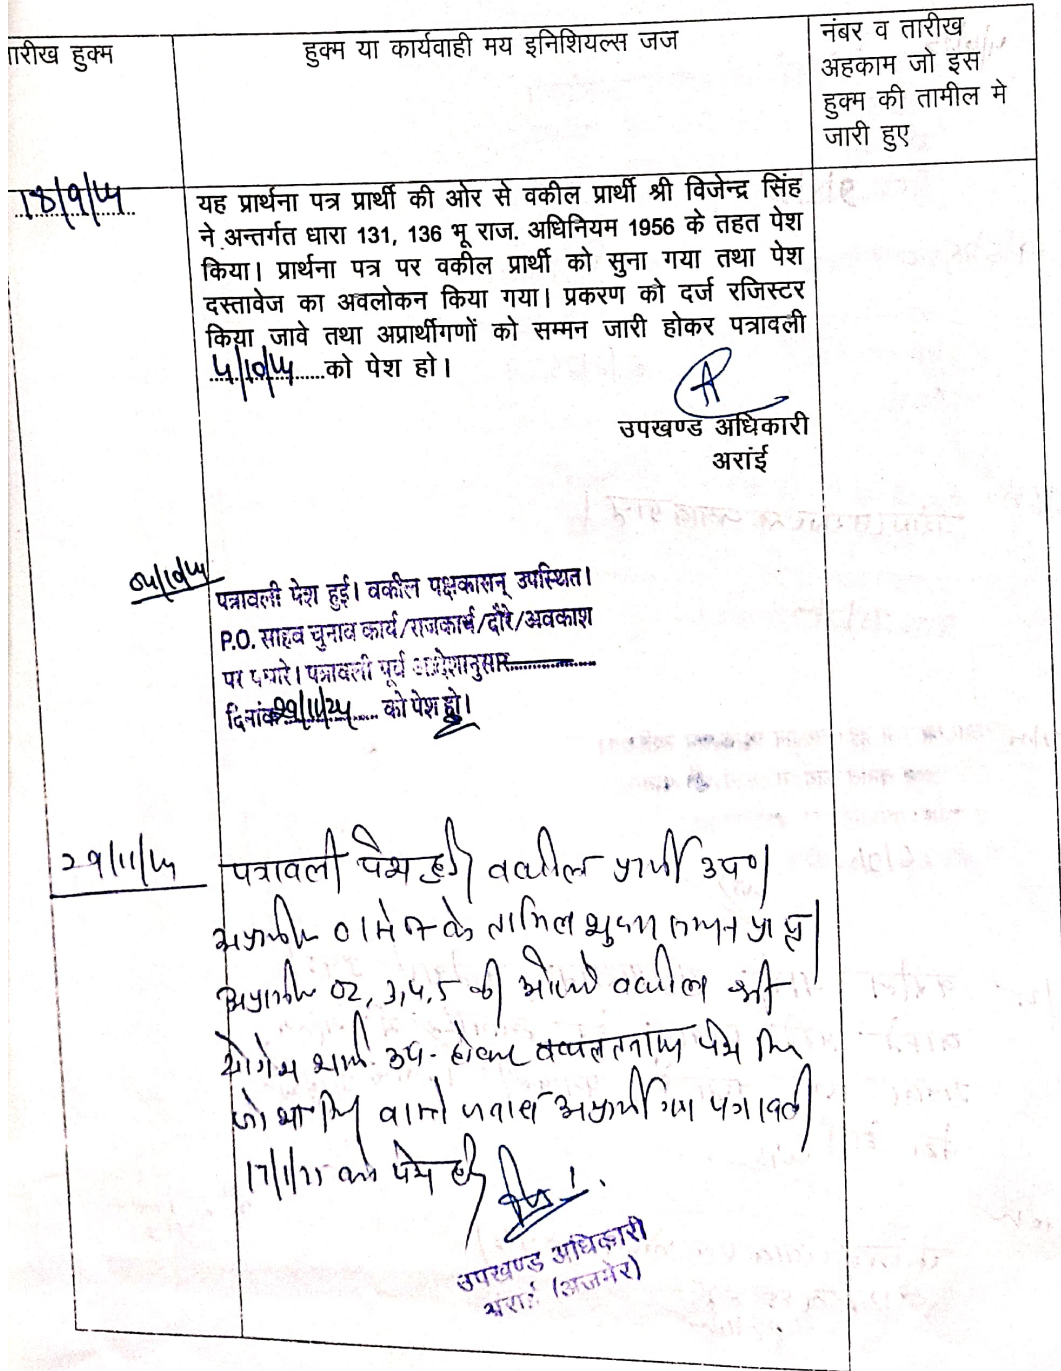 तारीख हुक्म
हुक्म या कार्यवाही मय इनिशियल्स जज
नंबर व तारीख
अहकाम जो इस
हुक्म की तामील मे
जारी हुए
18/9/24
यह प्रार्थना पत्र प्रार्थी की ओर से वकील प्रार्थी श्री विजेन्द्र सिंह
ने अन्तर्गत धारा 131, 136 भू राज. अधिनियम 1956 के तहत पेश
किया। प्रार्थना पत्र पर वकील प्रार्थी को सुना गया तथा पेश
दस्तावेज का अवलोकन किया गया। प्रकरण को दर्ज रजिस्टर
किया जावे तथा अप्रार्थीगणों को सम्मन जारी होकर पत्रावली
को पेश हो।
उपखण्ड अधिकारी
अरांई
पत्रावली पेश हुई। वकील पक्षकासन् उपस्थित।
P.O. साहब चुनाव कार्य/राजकार्य/दौरे/अवकाश
पर पधारे। पत्रावली पूर्व आदेशानुसार
दिनांक 29/11/24 को पेश हो।
29/11/24
पत्रावली पेश हुई वकील प्रार्थी उप०
के तामिल शुदा सम्मन
02, 3, 4, 5 की ओर से वकील श्री
योगेश शर्मा उप. होकर वकालतनामा पेश
वास्ते जवाब अप्रार्थीगण पत्रावली
को पेश हो
उपखण्ड अधिकारी
अरांई (अजमेर)